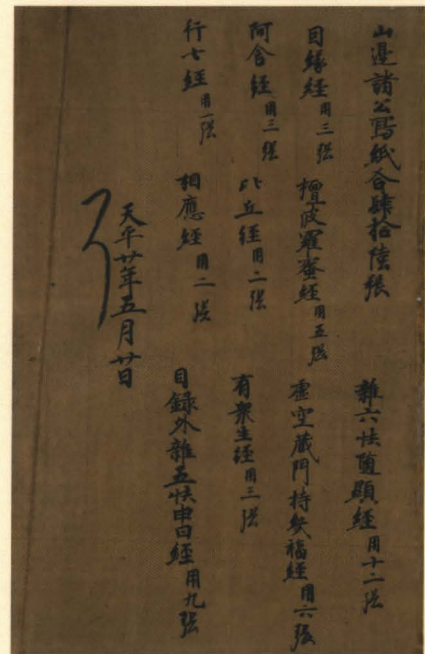 山邊諸公寫紙合肆拾陸張
雜六帙随願經 用十二張
因縁經 用三張 檀波羅蜜經 用五張 虚空蔵門持幾福經 用六張
阿含經 用三張 比丘經 用二張 有衆生經 用三張
行七經 用一張 相應經 用二張 目録外雜五帙申日經 用九張
天平廿年五月廿日
了